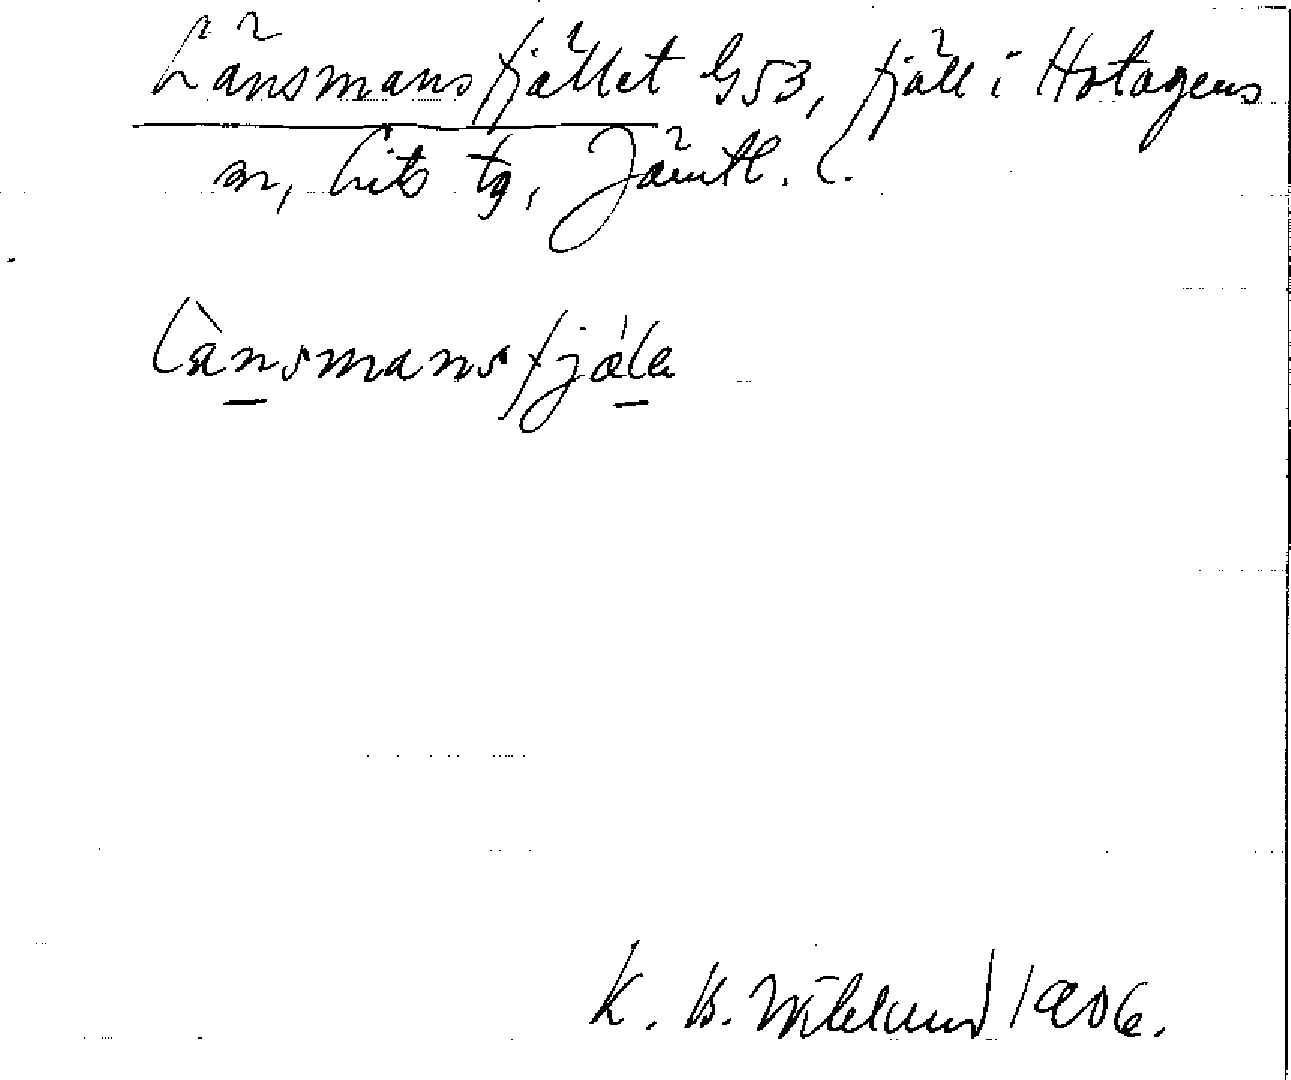 Länsmansfjället G53, fjäll i Hotagens
sn, Lits tg, Jämtl. l.
Lànsmansfjála
K. B. Wiklund 1906.